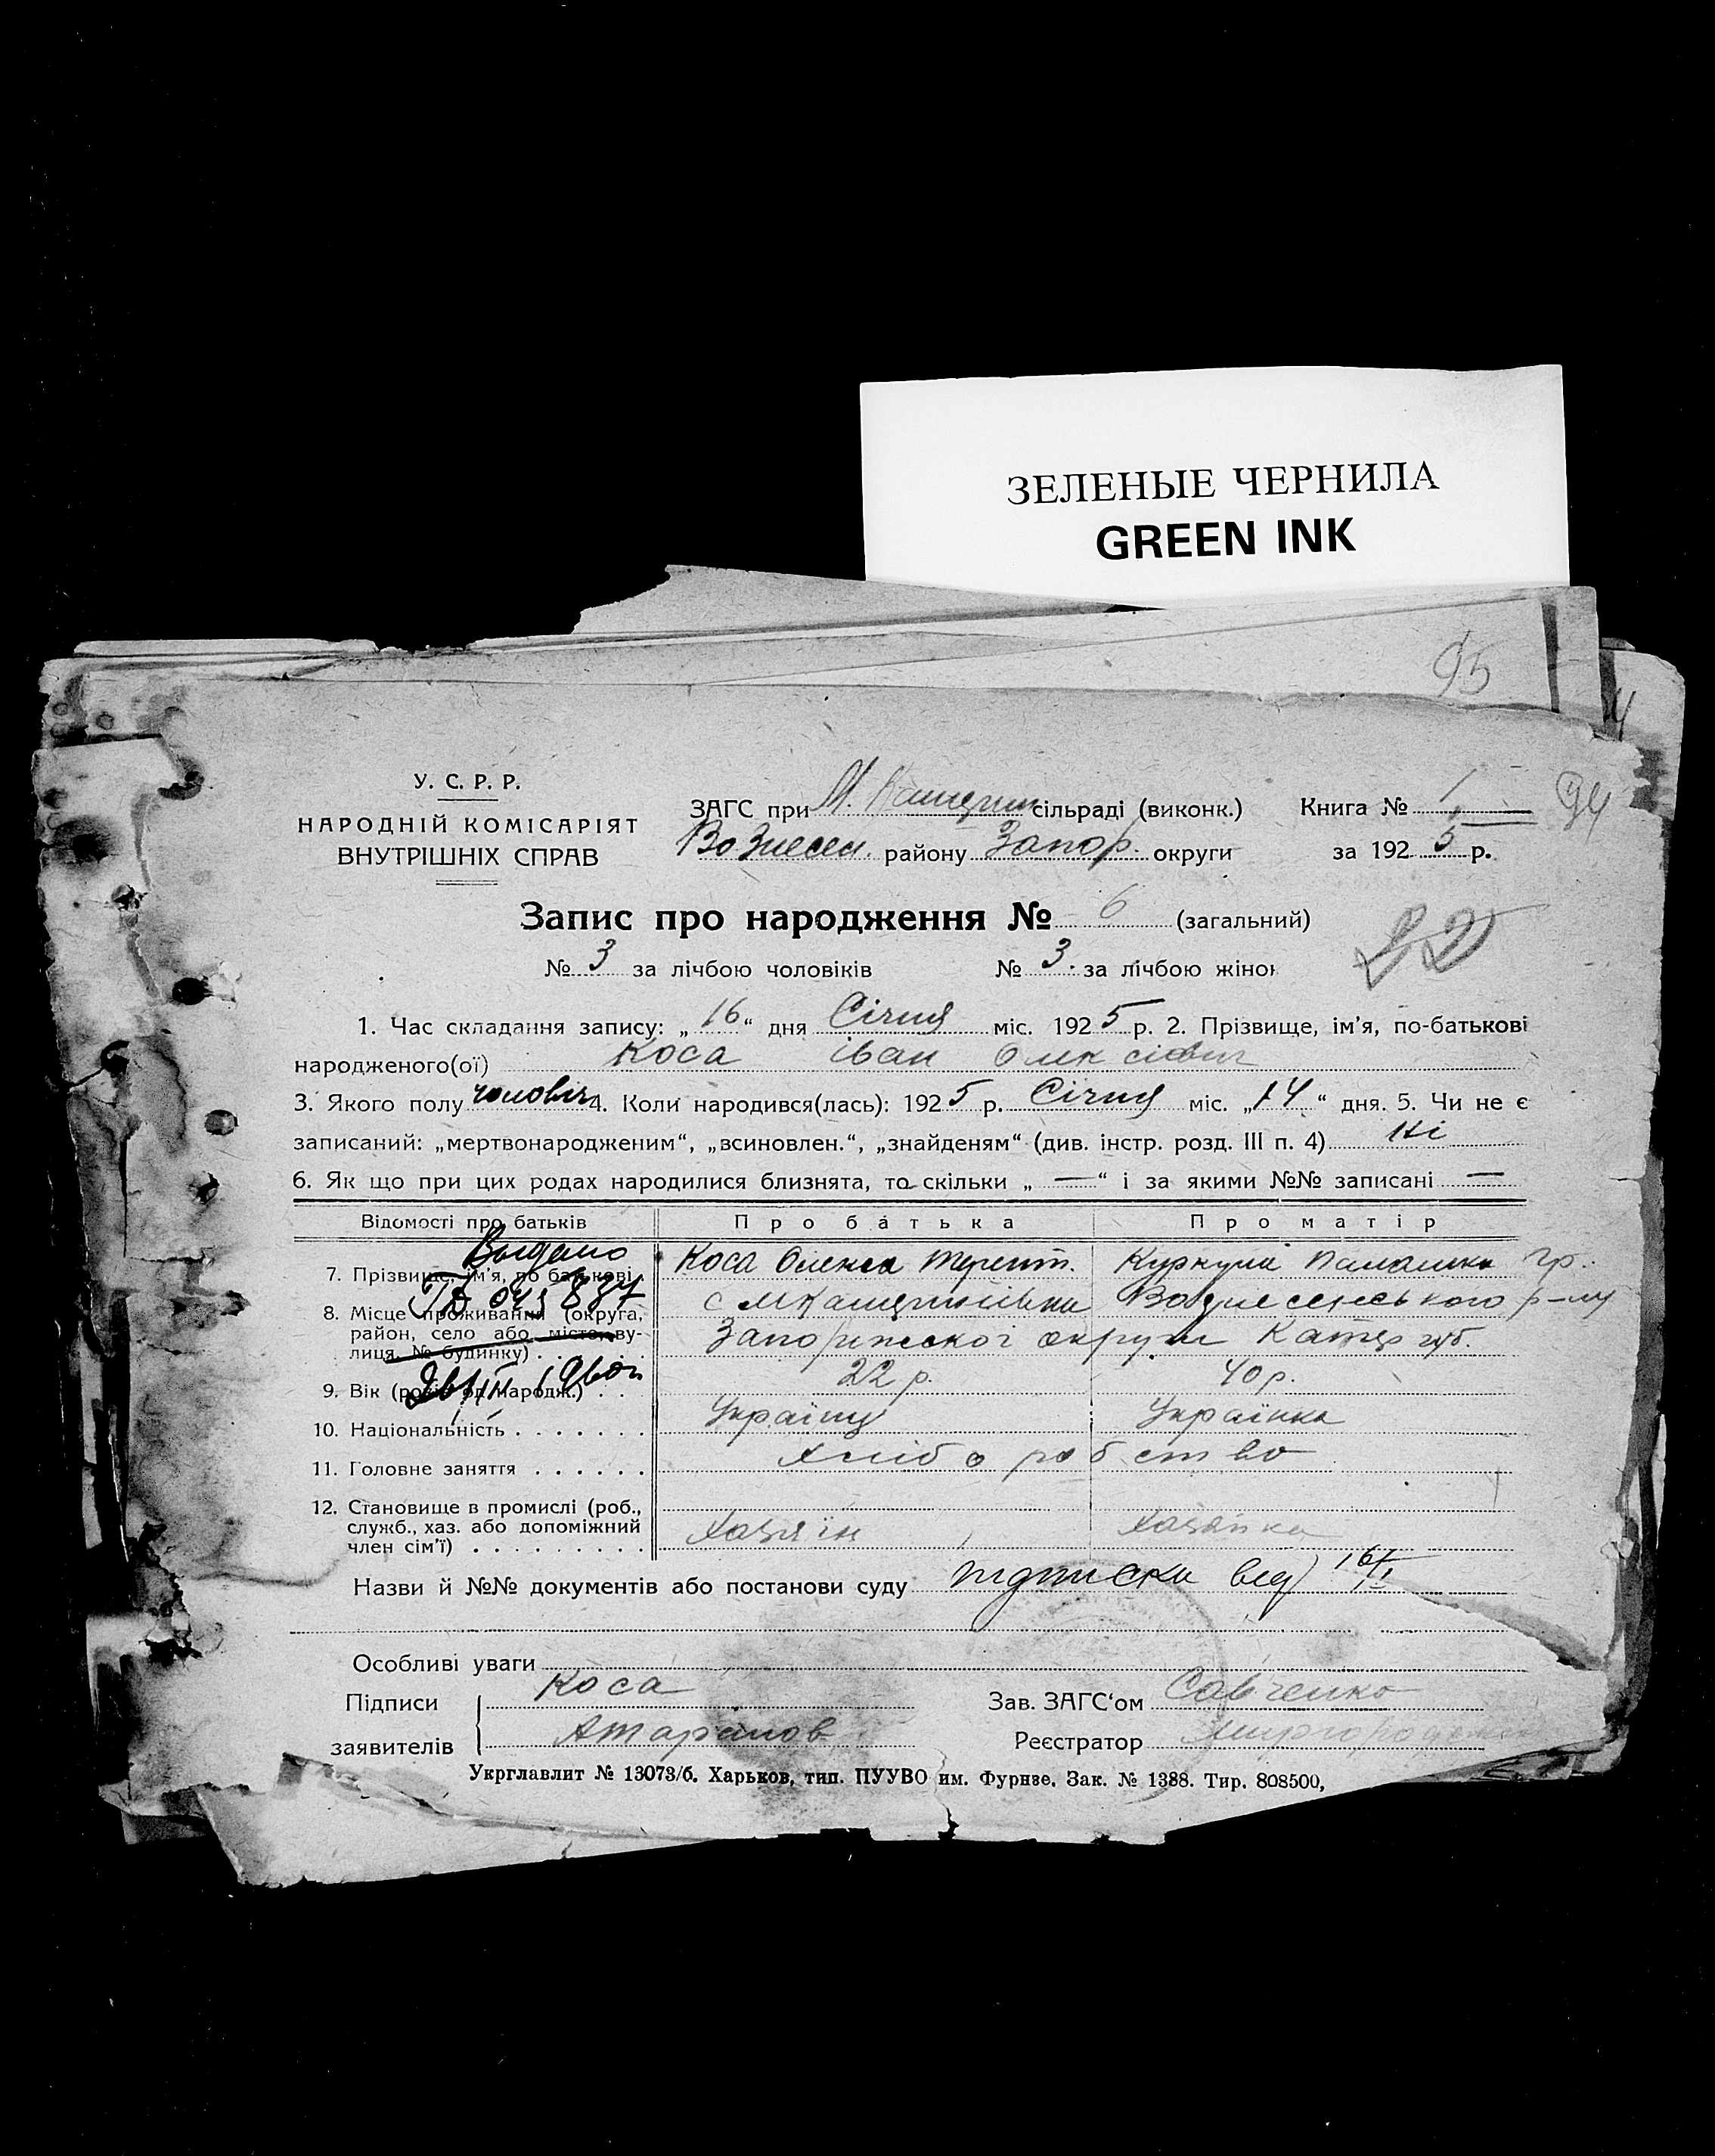 ЗЕЛЕНЫЕ ЧЕРНИЛА
GREEN INK
95
94
У. С. Р. Р.
НАРОДНІЙ КОМІСАРІЯТ
ВНУТРІШНІХ СПРАВ
ЗАГС при М. Катерин сільраді (виконк.) Книга № 1
Вознесен. району Запор. округи за 1925 р.
Запис про народження № 6 (загальний)
22
№ 3 за лічбою чоловіків № 3. за лічбою жінок
1. Час складання запису: „16“ дня Січня міс. 1925 р. 2. Прізвище, ім’я, по-батькові
народженого(ої) Коса Іван Олексієвич
3. Якого полу чоловіч 4. Коли народився(лась): 1925 р. Січня міс. „14“ дня. 5. Чи не є
записаний: „мертвонародженим“, „всиновлен.“, „знайденям“ (див. інстр. розд. III п. 4) Ні
6. Як що при цих родах народилися близнята, то скільки „ — “ і за якими №№ записані —
Відомості про батьків Про батька Про матір
Выдано
7. Прізвище, ім’я, по батькові Коса Олекса Терент. Куркуля Палашка Гр.
8. Місце проживання (округа, район, село або місто, вулиця, № будинку) с МКатеринівки Вознесенського р-ну
Запоріжської округи Катер губ.
9. Вік (років од народж.) 22 р. 40 р.
10. Національність Українц Українка
11. Головне заняття хліборобство
12. Становище в промислі (роб.,
служб., хаз. або допоміжний
член сім’ї) Хазяїн Хазяйка
Назви й №№ документів або постанови суду підписка від 16/I
Особливі уваги
Підписи Коса Зав. ЗАГС‘ом Савченко
заявителів Реєстратор
Укрглавлит № 13073/б. Харьков, тип. ПУУВО им. Фурнзе. Зак. № 1388. Тир. 808500,